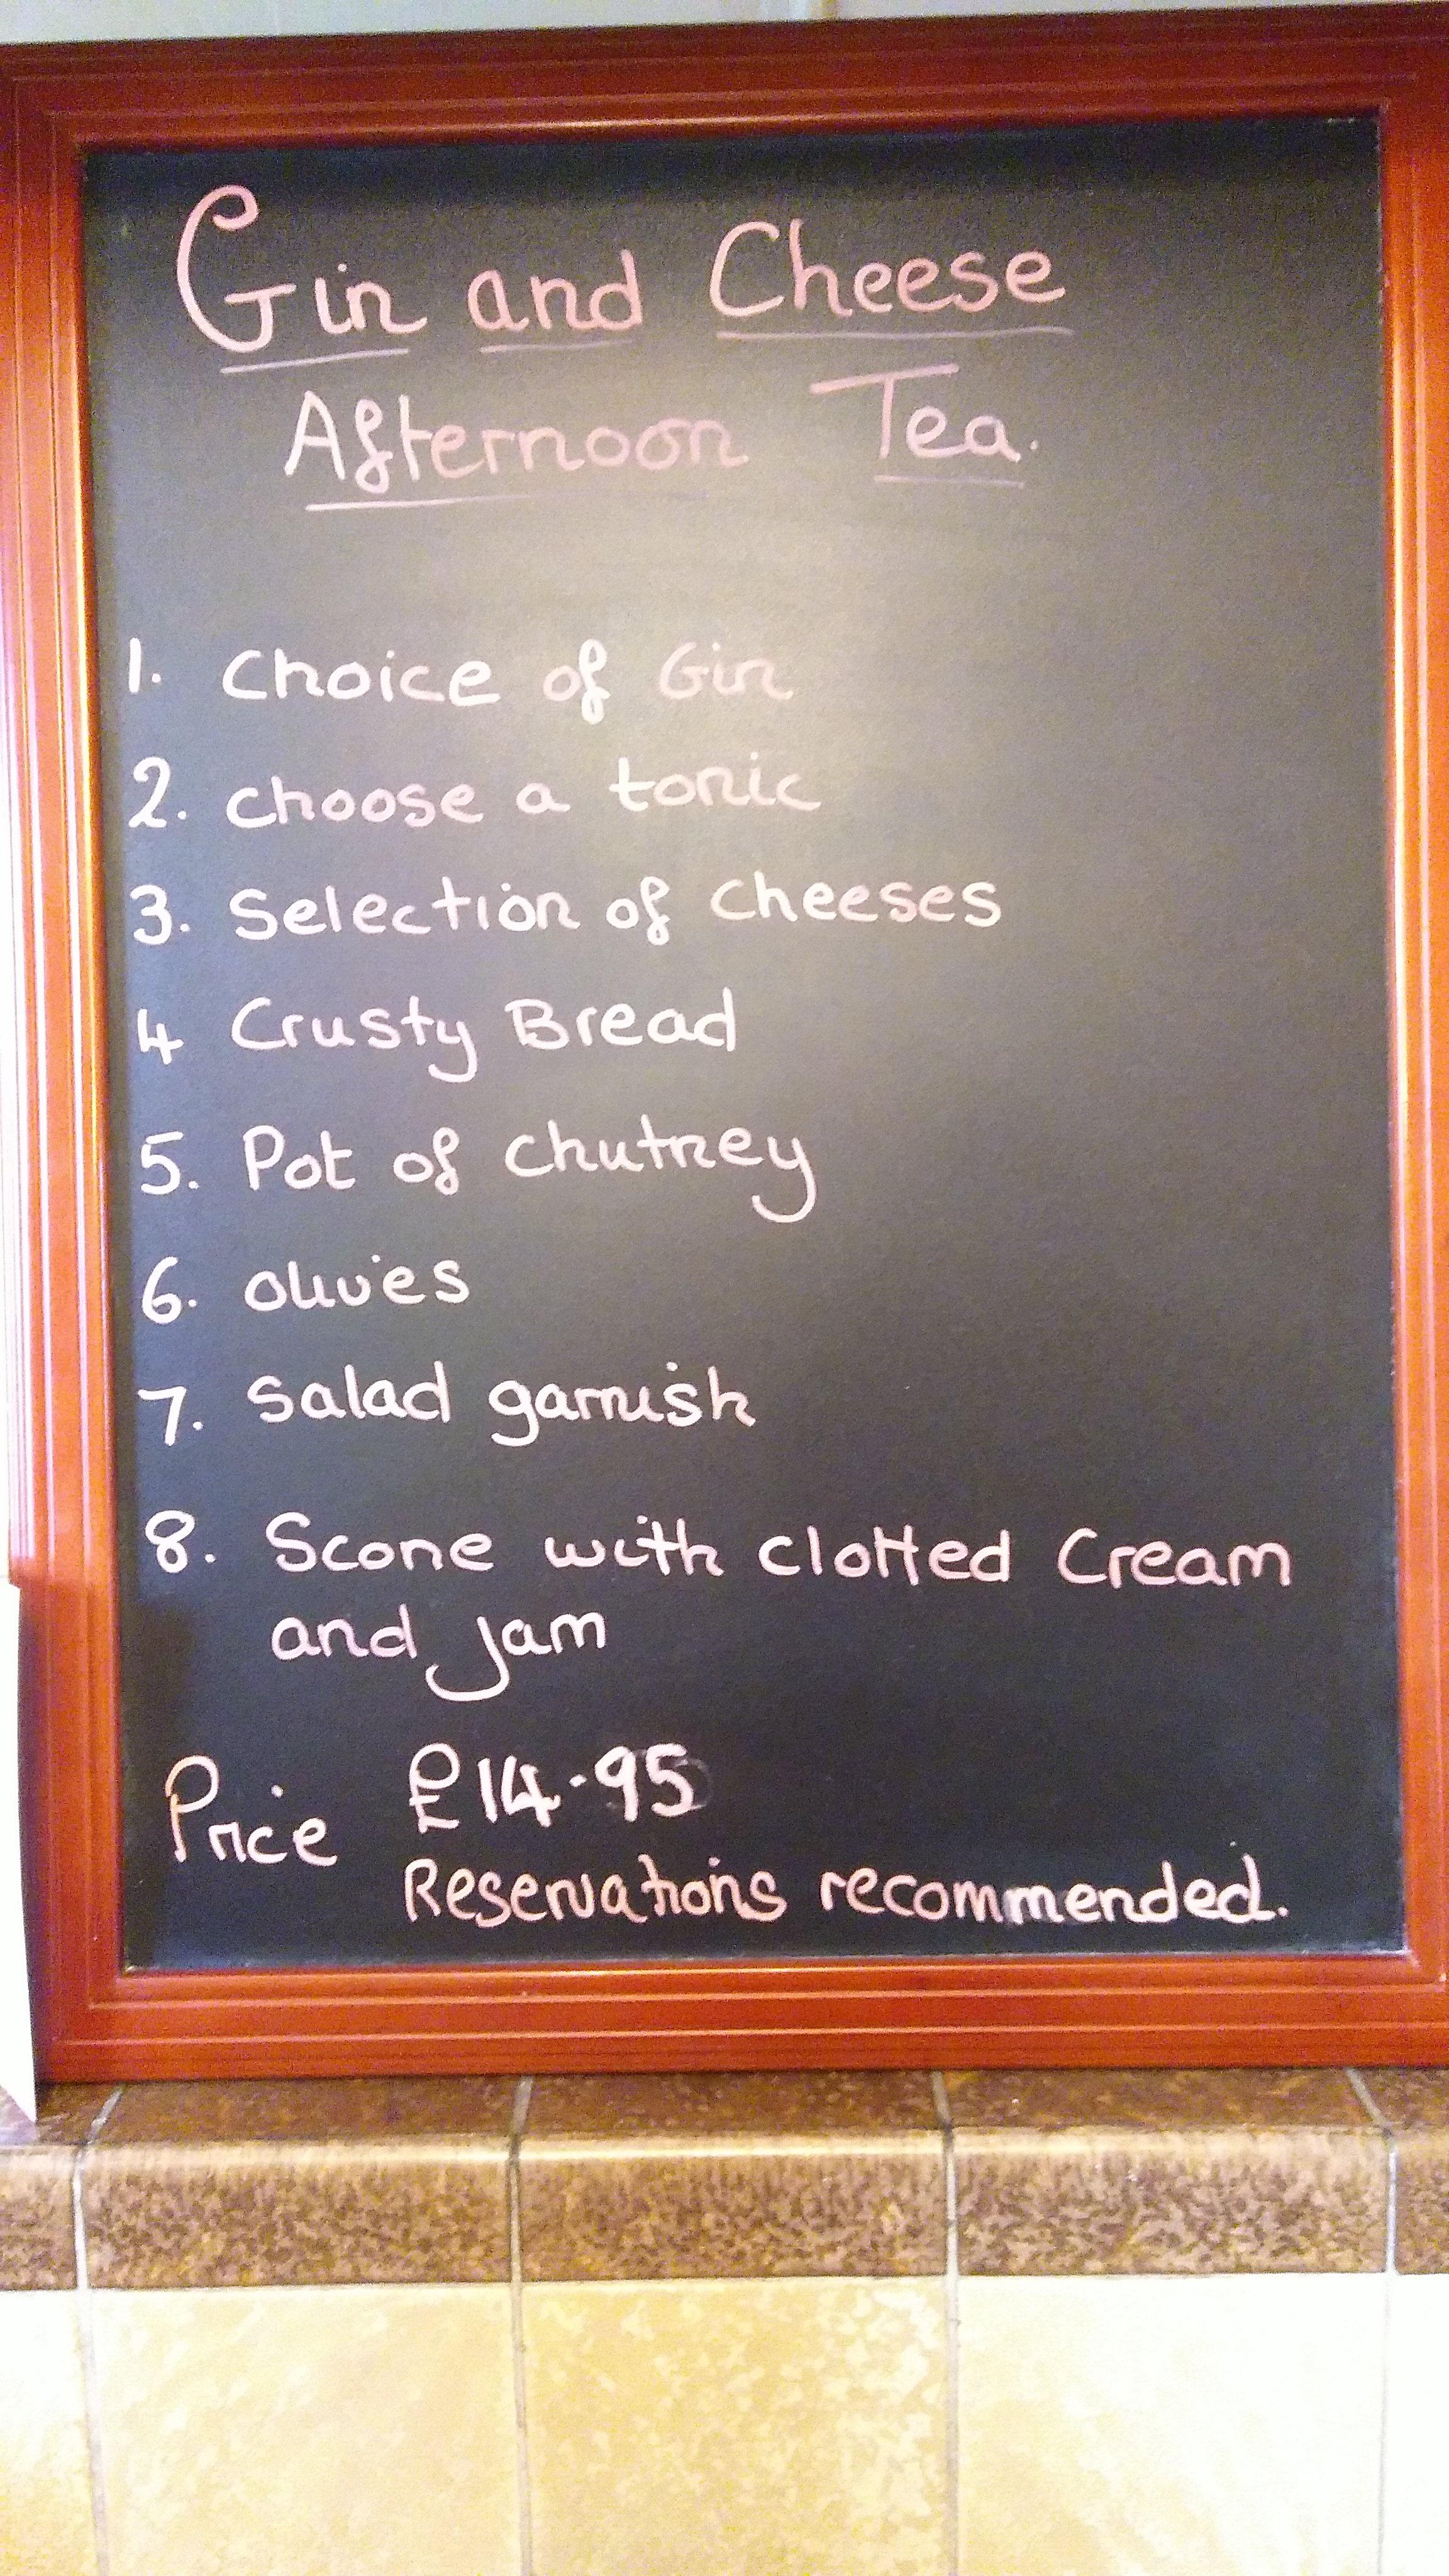 Gin and Cheese
Afternoon Tea.
1. Choice of Gin
2. choose a tonic
3. Selection of Cheeses
4 Crusty Bread
5. Pot of Chutney
6. olives
7. Salad garnish
8. Scone with clotted Cream
and jam
Price £14.95
Reservations recommended.